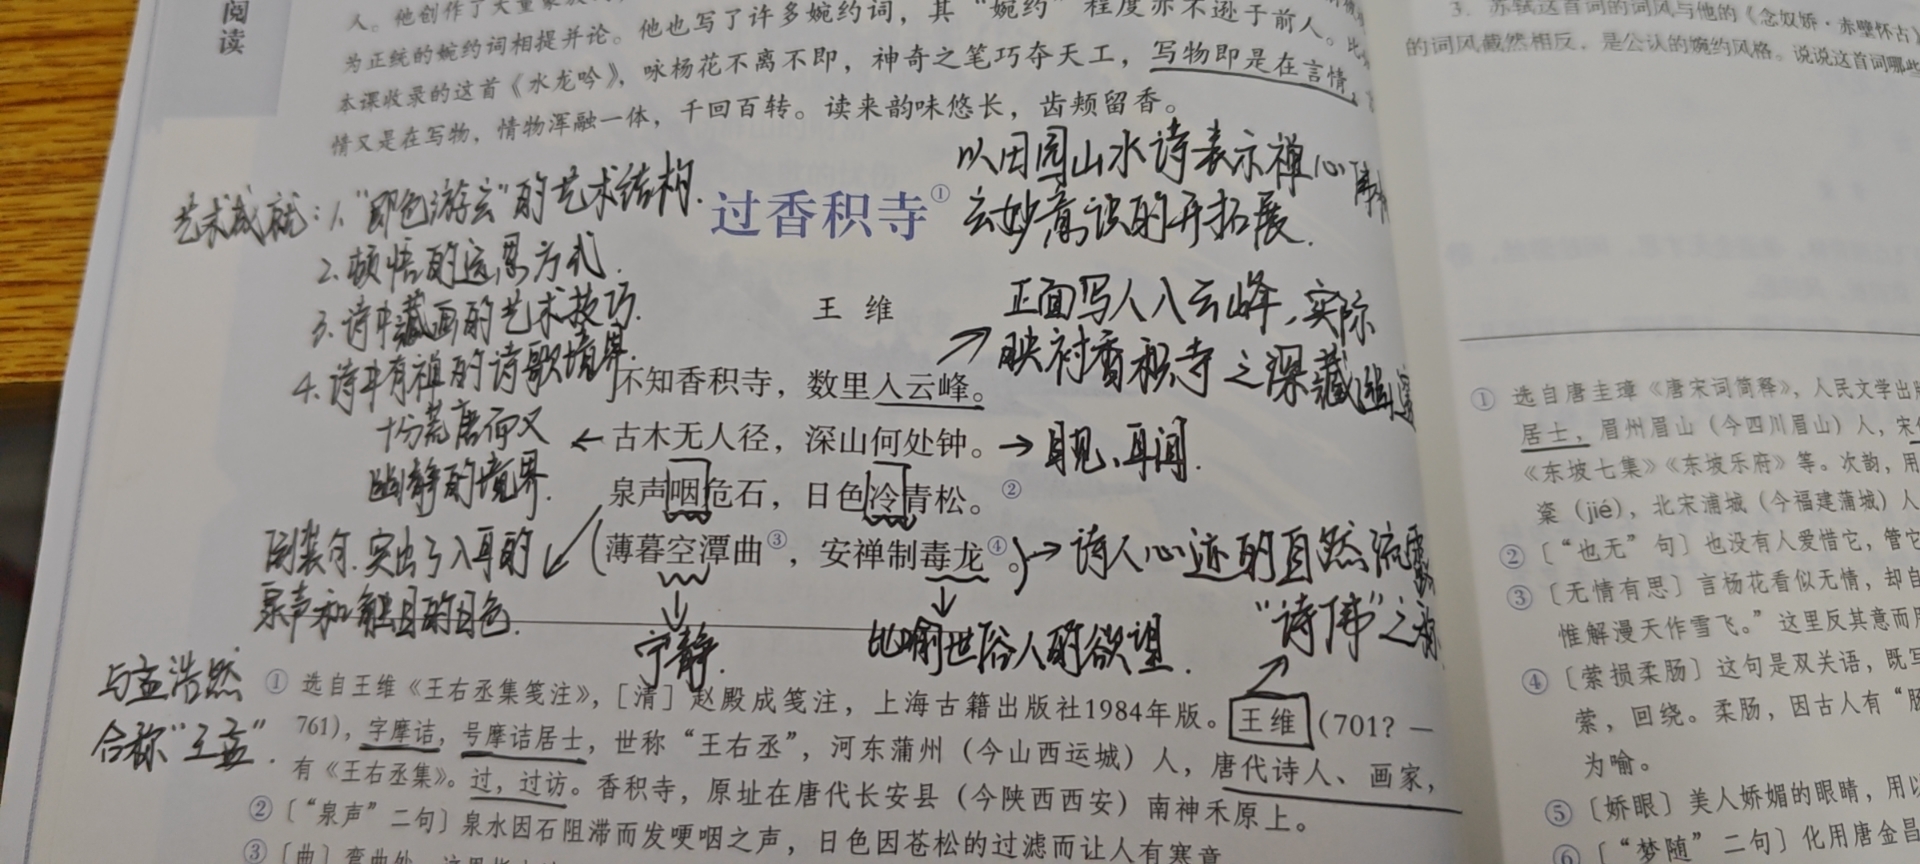 阅
读
人。他创作了大量豪放
为正统的婉约词相提并论。他也写了许多婉约词，其“婉约”程度亦不逊于前人。
本课收录的这首《水龙吟》，咏杨花不离不即，神奇之笔巧夺天工，写物即是在言情，
情又是在写物，情物浑融一体，千回百转。读来韵味悠长，齿颊留香。
艺术成就：1、“即色游玄”的艺术结构.
2. 顿悟的运思方式.
3. 诗中藏画的艺术技巧.
4. 诗中有禅的诗歌境界.
过香积寺①
以田园山水诗表示禅心
玄妙意识的开拓展.
王 维
正面写人入云峰，实际
映衬香积寺之深藏幽邃
不知香积寺，数里入云峰。
十分荒唐而又
幽静的境界.
← 古木无人径，深山何处钟。→ 目见、耳闻.
泉声咽危石，日色冷青松。②
倒装句.突出了入耳的
泉声和触目的日色.
(薄暮空潭曲③，安禅制毒龙④。)→诗人心迹的自然流露
宁静.
比喻世俗人的欲望.
“诗佛”之称
与孟浩然
合称“王孟”.
① 选自王维《王右丞集笺注》，［清］赵殿成笺注，上海古籍出版社1984年版。王维（701？—
761），字摩诘，号摩诘居士，世称“王右丞”，河东蒲州（今山西运城）人，唐代诗人、画家，
有《王右丞集》。过，过访。香积寺，原址在唐代长安县（今陕西西安）南神禾原上。
②〔“泉声”二句〕泉水因石阻滞而发哽咽之声，日色因苍松的过滤而让人有寒意
③〔曲〕弯曲处
3. 苏轼这首词的词风与他的《念奴娇·赤壁怀古》
的词风截然相反，是公认的婉约风格。说说这首词哪些
① 选自唐圭璋《唐宋词简释》，人民文学出版
居士，眉州眉山（今四川眉山）人，宋代
《东坡七集》《东坡乐府》等。次韵，用
楶（jié），北宋浦城（今福建蒲城）人
②〔“也无”句〕也没有人爱惜它，管它
③〔无情有思〕言杨花看似无情，却自
惟解漫天作雪飞。”这里反其意而用
④〔萦损柔肠〕这句是双关语，既写
萦，回绕。柔肠，因古人有“肠
为喻。
⑤〔娇眼〕美人娇媚的眼睛，用以
⑥〔“梦随”二句〕化用唐金昌